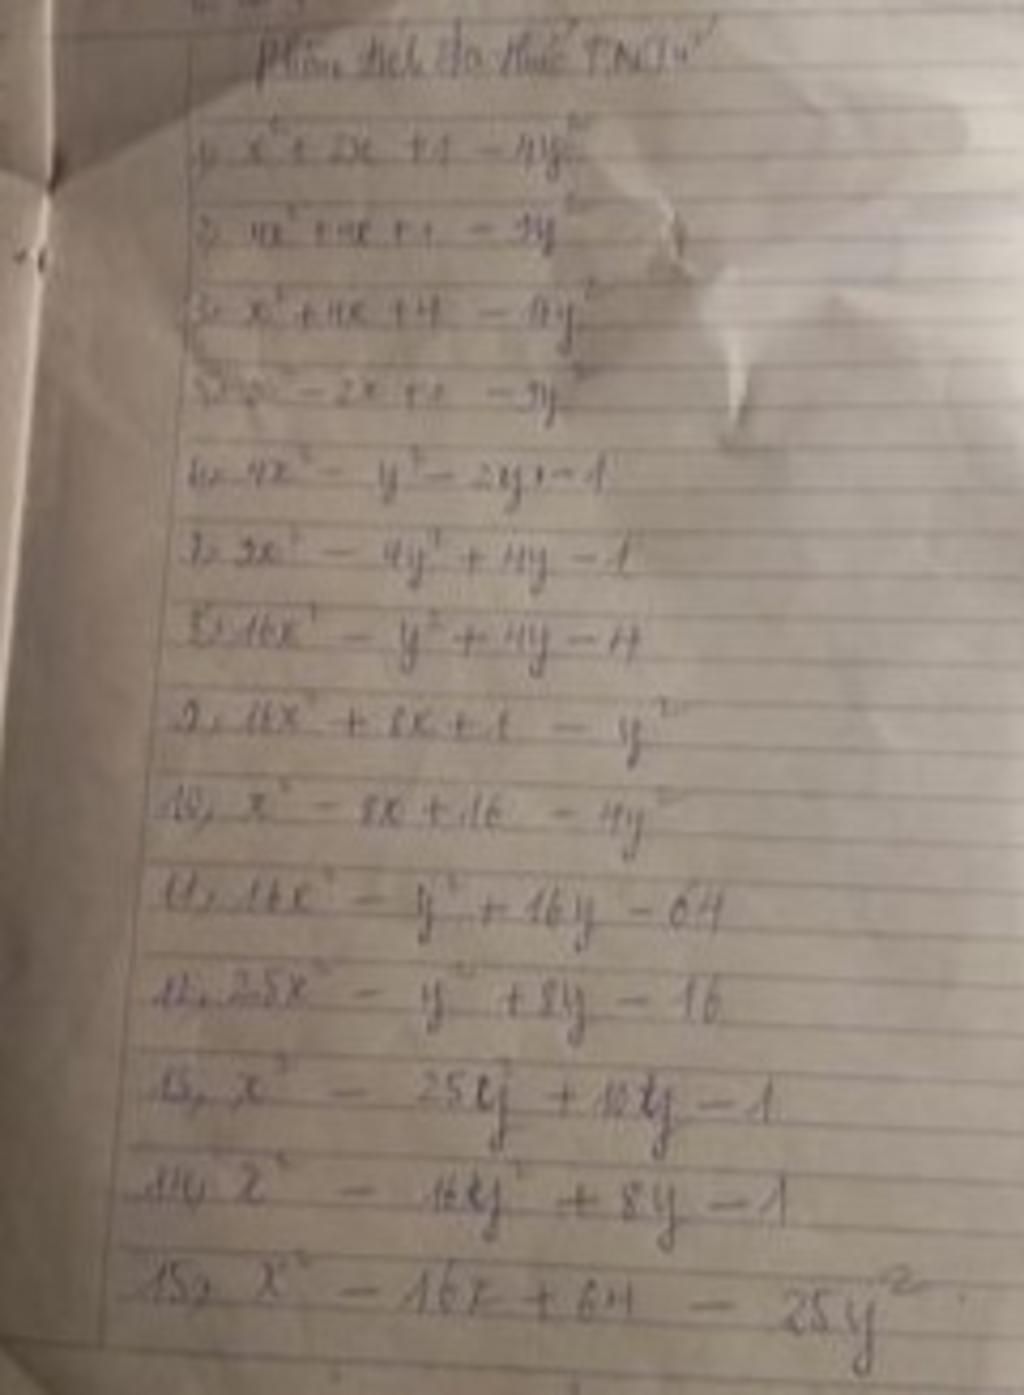 Phân tích đa thức TNTử
1, x² + 2x + 1 - 4y²
2, 4x² + 4x + 1 - 9y²
3, x² + 4x + 4 - 4y²
- 2x + 1 - 9y²
6, 4x² - y² - 2y - 1
7, 9x² - 4y² + 4y - 1
8, 16x² - y² + 4y - 4
9, 16x² + 8x + 1 - y²
10, x² - 8x + 16 - 4y²
11, 16x² - y² + 16y - 64
12, 25x² - y² + 8y - 16
13, x² - 25y² + 10y - 1
14, x² - 16y² + 8y - 1
15, x² - 16x + 64 - 25y²